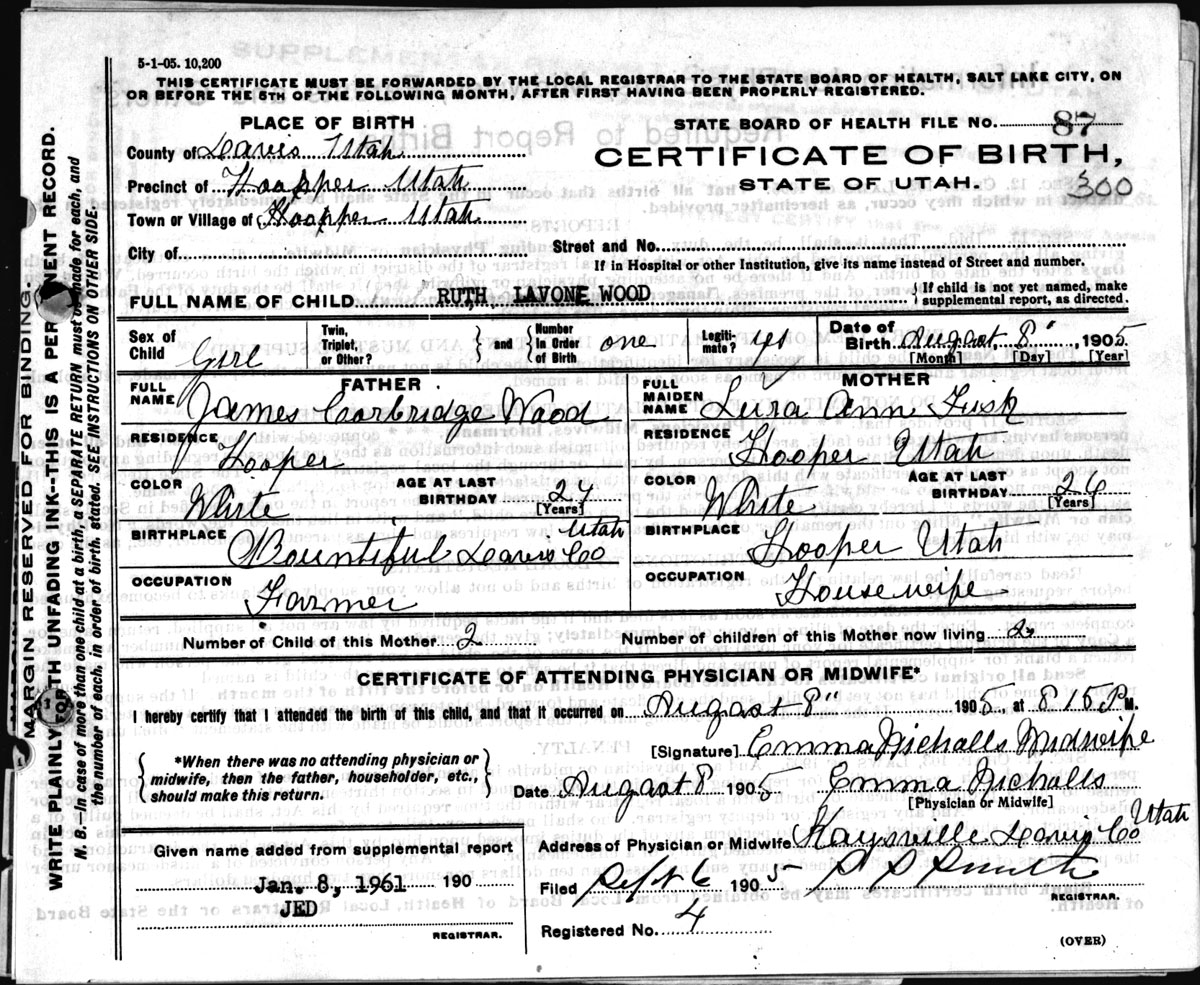 5-1-05. 10,200
THIS CERTIFICATE MUST BE FORWARDED BY THE LOCAL REGISTRAR TO THE STATE BOARD OF HEALTH, SALT LAKE CITY, ON
OR BEFORE THE 5TH OF THE FOLLOWING MONTH, AFTER FIRST HAVING BEEN PROPERLY REGISTERED.
PLACE OF BIRTH
STATE BOARD OF HEALTH FILE NO. 87
County of Davis Utah
CERTIFICATE OF BIRTH,
Precinct of Hoopper Utah
STATE OF UTAH. 300
Town or Village of Hoopper Utah
City of Street and No.
If in Hospital or other Institution, give its name instead of Street and number.
FULL NAME OF CHILD RUTH LAVONE WOOD { If child is not yet named, make
supplemental report, as directed.
Sex of Child Girl Twin, Triplet, or Other? } and { Number in Order of Birth one Legiti-mate? yes Date of Birth Augast, 8", 1905
[Month] [Day] [Year]
FATHER
FULL NAME James Corbridge Wood
RESIDENCE Hooper
COLOR White AGE AT LAST BIRTHDAY 27
[Years]
BIRTHPLACE Bountiful Davis Co Utah
OCCUPATION Farmer
MOTHER
FULL MAIDEN NAME Lura Ann Fisk
RESIDENCE Hooper Utah
COLOR White AGE AT LAST BIRTHDAY 26
[Years]
BIRTHPLACE Hooper Utah
OCCUPATION Housewife
Number of Child of this Mother 2 Number of children of this Mother now living 2
CERTIFICATE OF ATTENDING PHYSICIAN OR MIDWIFE*
I hereby certify that I attended the birth of this child, and that it occurred Augast 8" 1905, at 8 15 P M.
*When there was no attending physician or
midwife, then the father, householder, etc.,
should make this return.
[Signature] Emma Nichalls Midwife
Date Augast 8 1905 Emma Nichalls
[Physician or Midwife]
Given name added from supplemental report
Address of Physician or Midwife Kaysville Davis Co Utah
Jan. 8, 1961 190
Filed Sept 6 1905
JED
REGISTRAR.
REGISTRAR.
Registered No. 4
(OVER)
MARGIN RESERVED FOR BINDING.
WRITE PLAINLY WITH UNFADING INK--THIS IS A PERMANENT RECORD.
N. B.—In case of more than one child at a birth, a SEPARATE RETURN must be made for each, and
the number of each, in order of birth, stated. SEE INSTRUCTIONS ON OTHER SIDE.